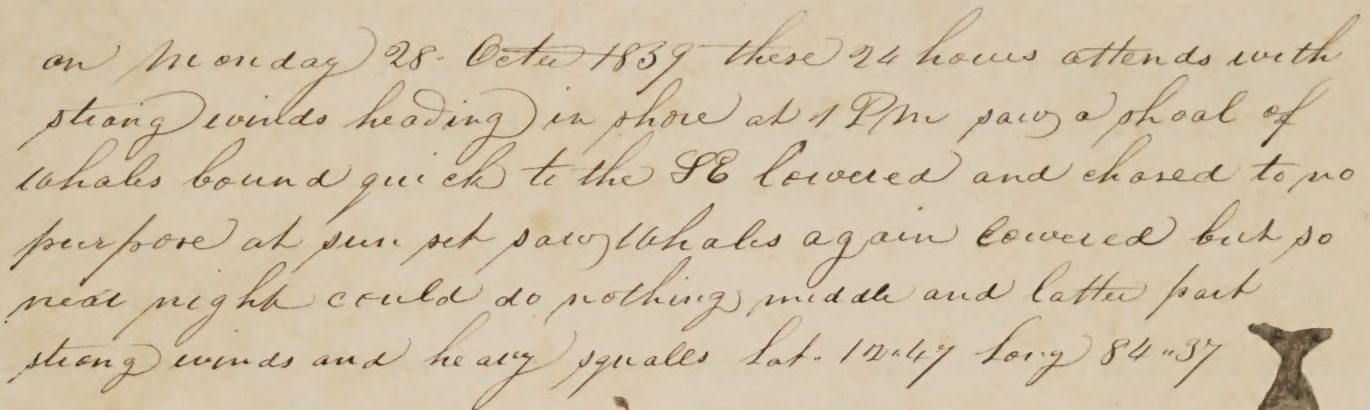 on Monday 28. Octer 1839 these 24 hours attends with
strong winds heading in shore at 1 PM saw a shoal of
Whales bound quick to the SE lowered and chased to no
purpose at sun set saw Whales again lowered but so
near night could do nothing middle and latter part
strong winds and heavy squalls Lat. 12"47 Long 84"37